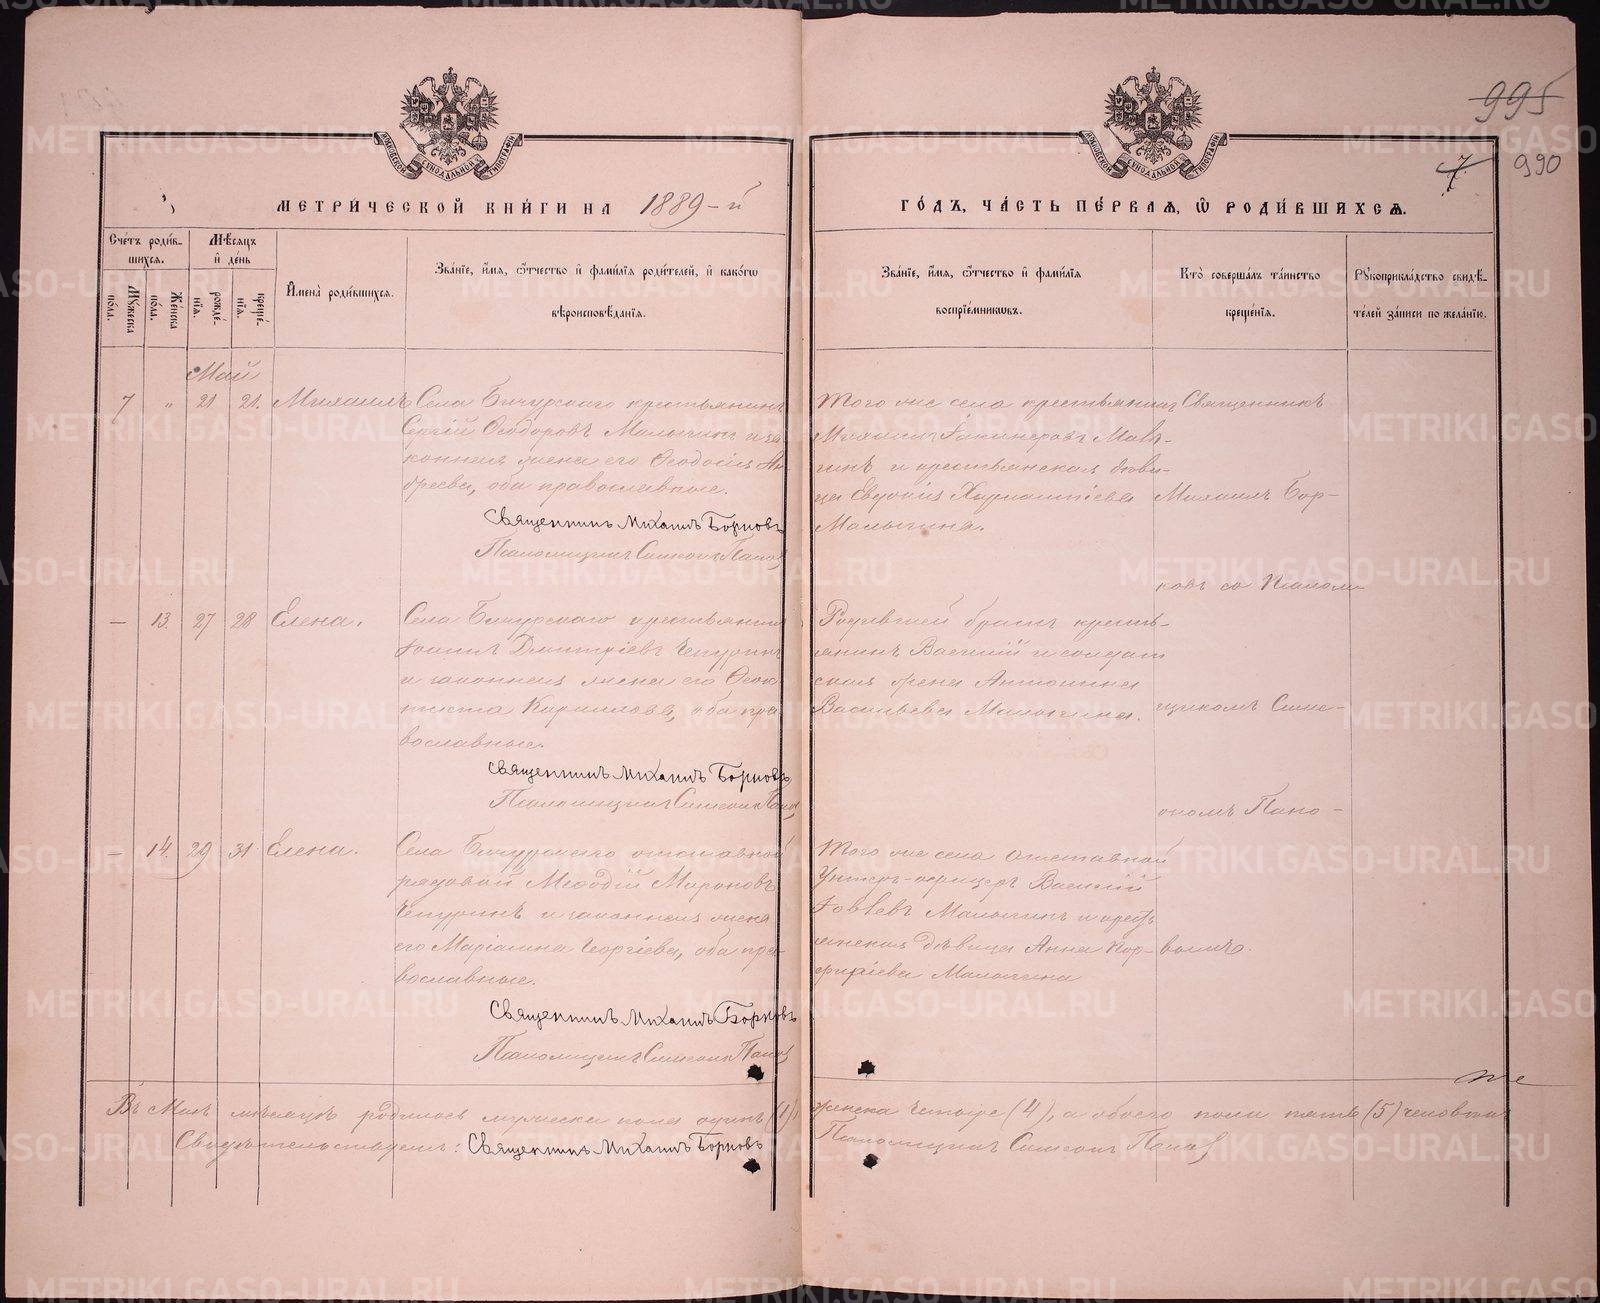 995
7.
990
МЕТРИ́ЧЕСКОЙ КНИ́ГИ НА 1889-й
ГО́ДЪ, ЧА́СТЬ ПЕ́РВАѦ, Ѿ РОДИ́ВШИХСѦ.
Сче́тъ роди́в-
шихсѧ.
Мꙋжеска
по́ла.
Же́нска
по́ла.
Мѣ́сѧцъ
и҆ де́нь
рожде́-
нїѧ.
креще́-
нїѧ.
И҆мена̀ роди́вшихсѧ.
Зва́нїе, и҆́мѧ, ѻ҆́тчество и҆ фами́лїѧ роди́телей, и҆ како́гѡ
вѣроисповѣ́данїѧ.
Зва́нїе, и҆́мѧ, ѻ҆́тчество и҆ фами́лїѧ
воспрїе́мникѡвъ.
Кто̀ соверша́лъ та́инство
креще́нїѧ.
Рꙋкоприкла́дство свидѣ́-
телей за́писи по жела́нїю.
Май
7 „ 21 21. Михаилъ
Села Бичурскаго крестьянинъ
Сергій Ѳеодоровъ Малыгинъ и за-
конная жена его Ѳеодосія Ан-
дреева, оба православные.
Священникъ Михаилъ Борковъ
Псаломщикъ Симеонъ Поповъ
Того же села крестьянинъ
Михаилъ
и крестьянская дѣви-
ца Евдокія
Малыгина.
Священникъ
Михаилъ Бор-
ковъ со псалом-
щикомъ Симе-
ономъ Попо-
вымъ.
— 13. 27 28 Елена.
Села Бичурскаго крестьянинъ
Дмитріевъ Чепуринъ
и законная жена его Ѳеок-
тиста Кириллова, оба пра-
вославные.
Священникъ Михаилъ Борковъ
Псаломщикъ Симеонъ Поповъ
Родившей братъ кресть-
янинъ Василій и солдат-
ская жена Антонина
Васильева Малыгина.
— 14. 29 31 Елена.
Села Бичурскаго отставной
рядовой Меѳодій Мироновъ
Чепуринъ и законная жена
его Маріамна Георгіева, оба пра-
вославные.
Священникъ Михаилъ Борковъ
Псаломщикъ Симеонъ Поповъ
Того же села отставной
унтеръ-офицеръ Василій
Іовлевъ Малыгинъ и кресть-
янская дѣвица Анна Пор-
фиріева Малыгина
Въ Маѣ мѣсяцѣ родилось мужеска пола одинъ (1),
женска четыре (4), а обоего пола пять (5) человѣкъ
Свидѣтельствуемъ: Священникъ Михаилъ Борковъ
Псаломщикъ Симеонъ Поповъ
METRIKI.GASO-URAL.RU